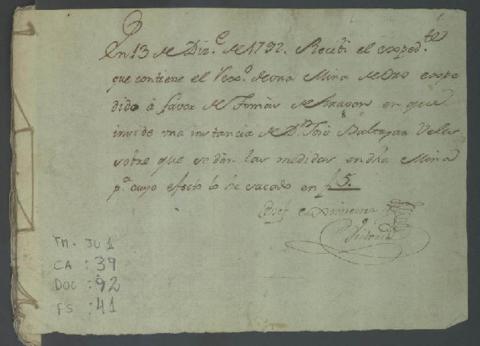 En 13 de Diz.e de 1792. Recibi el exped.te
que contiene el de una Mina de Oro expe
dido á favor de Tomàs de Aragon en que
incide una instancia de D.n José Baltazar
sobre que se dén las medidas en dha Mina
p.a cuyo efecto lo he sacado en f 5.
Josef
TM. JU 1
CA : 39
DOC : 92
FS : 41